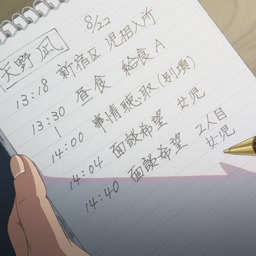 天野 凪 8/22
13:18 新宿区 児相入所
13:30 昼食 給食 A
|
14:00 事情聴取(別項)
14:04 面談希望 女児
14:40 面談希望 2人目 女児